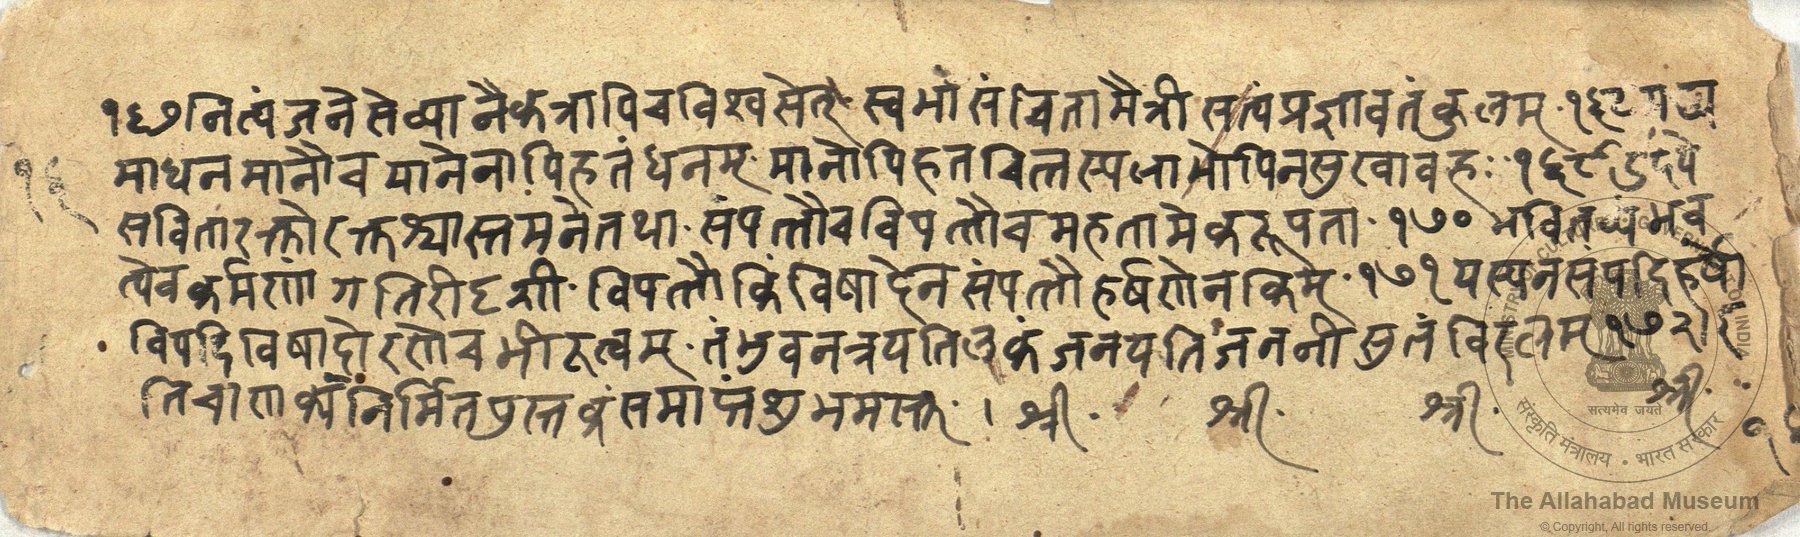 १६७ नित्यं जने सेव्या नैकत्रापि च विश्वसेत् स्वभा संचेता मैत्री सत्यं प्रज्ञावतं कुलम् · १६८
मा धनमानौ च मानेनापि हतं धनम् · मानोपि हतचित्तस्य पि न सुखावहः · १६९ उदये
सविता रक्तो रक्तश्चास्तमने तथा · संपत्तौ च विपत्तौ च महतामेकरूपता · १७० भवितव्यं भव
त्येव कर्मणां गतिरीदृशी · विपत्तौ किं विषादेन संपत्तौ हर्षणेन किम् · १७१ यस्य न संपदि हर्षो
विपदि विषादो रणे च भीरुत्वम् · तं भुवनत्रयतिलकं जनयति जननी सुतं विरलम् १७२ । इ
ति चाणक्यनिर्मित पुस्तकं समाप्तं शुभमस्तु · । श्री · श्री · श्री · श्री ·
१६
MINISTRY OF CULTURE · GOVERNMENT OF INDIA
सत्यमेव जयते
संस्कृति मंत्रालय · भारत सरकार
The Allahabad Museum
© Copyright, All rights reserved.